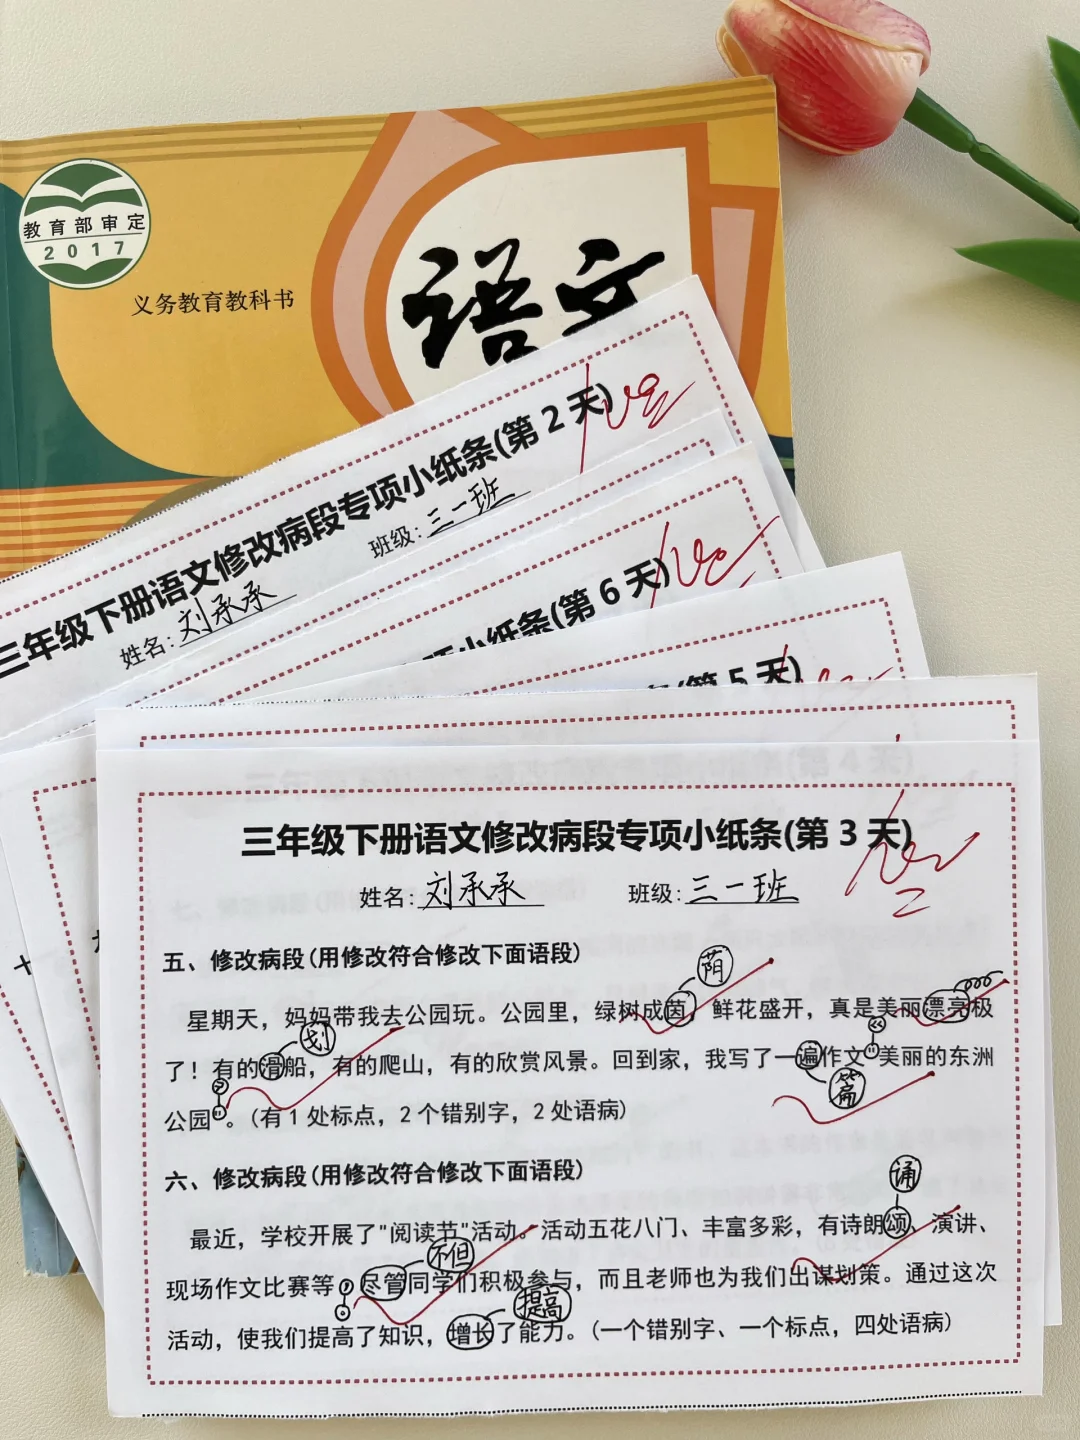 教育部审定
2017
义务教育教科书
语文
三年级下册语文修改病段专项小纸条(第 2 天)
姓名:刘承承 班级:三一班
小纸条(第 6 天)
(第 5 天)
三年级下册语文修改病段专项小纸条(第 3 天)
姓名:刘承承 班级:三一班
五、修改病段(用修改符合修改下面语段)
荫
星期天，妈妈带我去公园玩。公园里，绿树成茵，鲜花盛开，真是美丽漂亮极
划
了！有的滑船，有的爬山，有的欣赏风景。回到家，我写了一遍作文"美丽的东洲
《 篇
公园"。(有 1 处标点，2 个错别字，2 处语病)
》
六、修改病段(用修改符合修改下面语段)
诵
最近，学校开展了"阅读节"活动。活动五花八门、丰富多彩，有诗朗颂、演讲、
不但
现场作文比赛等，尽管同学们积极参与，而且老师也为我们出谋划策。通过这次
提高
活动，使我们提高了知识，增长了能力。(一个错别字、一个标点，四处语病)